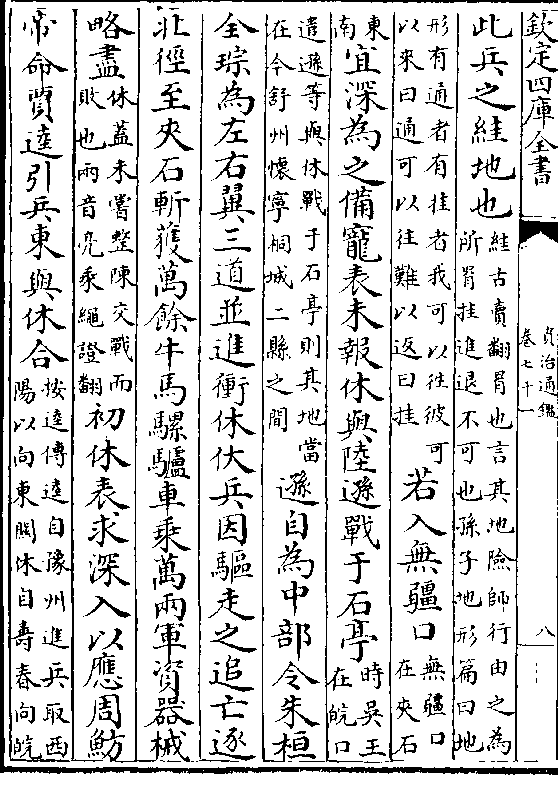 欽定四庫全書
資治通鑑
卷七十一
八
此兵之絓地也
絓古賣翻罥也言其地險師行由之為
所罥挂進退不可也孫子地形篇曰地
形有通者有挂者我可以往彼可
以來曰通可以往難以返曰挂
若入無疆口
無疆口
在夾石
東
南
宜深為之備寵表未報休與陸遜戰于石亭
時吳王
在皖口
遣遜等與休戰于石亭則其地當
在今舒州懷寧桐城二縣之間
遜自為中部令朱桓
全琮為左右翼三道並進衝休伏兵因驅走之追亡逐
北徑至夾石斬獲萬餘牛馬騾驢車乘萬兩軍資器械
略盡
休蓋未嘗整陳交戰而
敗也兩音亮乘繩證翻
初休表求深入以應周魴
帝命賈逵引兵東與休合
按逵傳逵自豫州進兵取西
陽以向東關休自壽春向皖